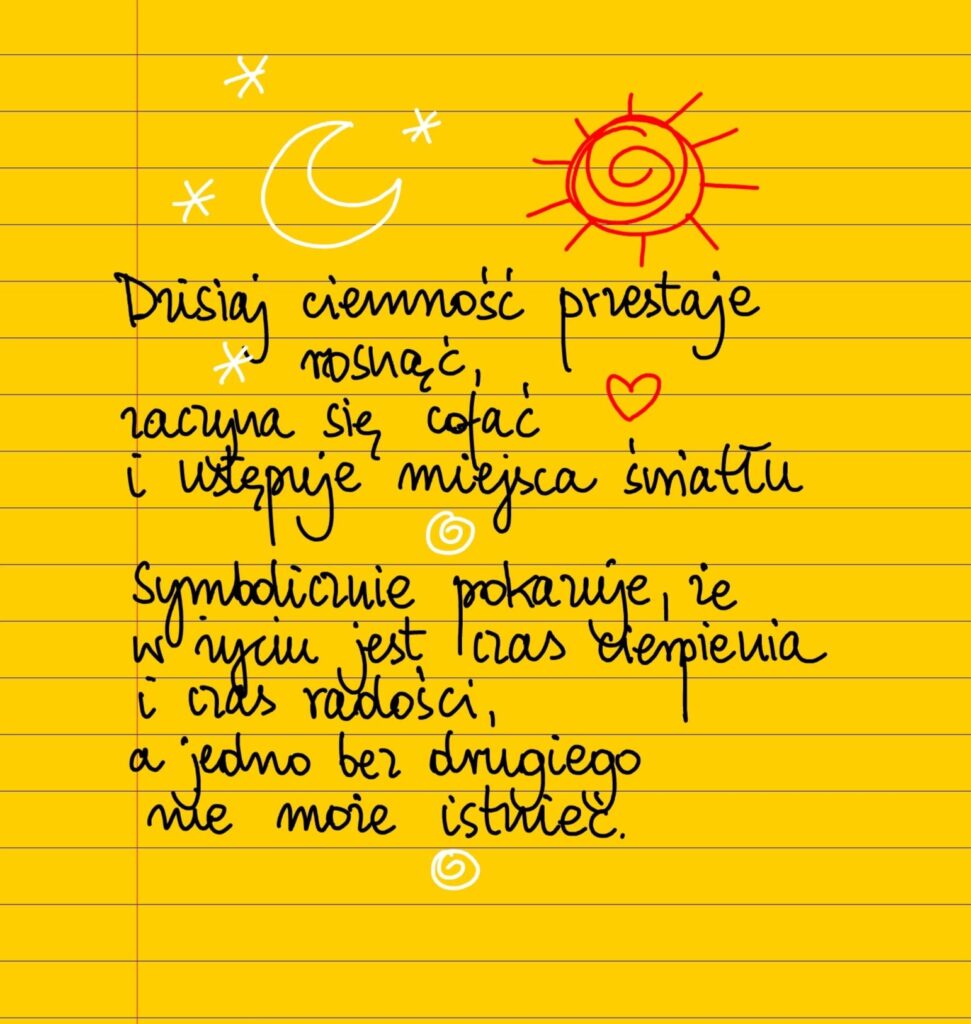 Dzisiaj ciemność przestaje
rosnąć,
zaczyna się cofać
i ustępuje miejsca światłu
Symbolicznie pokazuje, że
w życiu jest czas cierpienia
i czas radości,
a jedno bez drugiego
nie może istnieć.